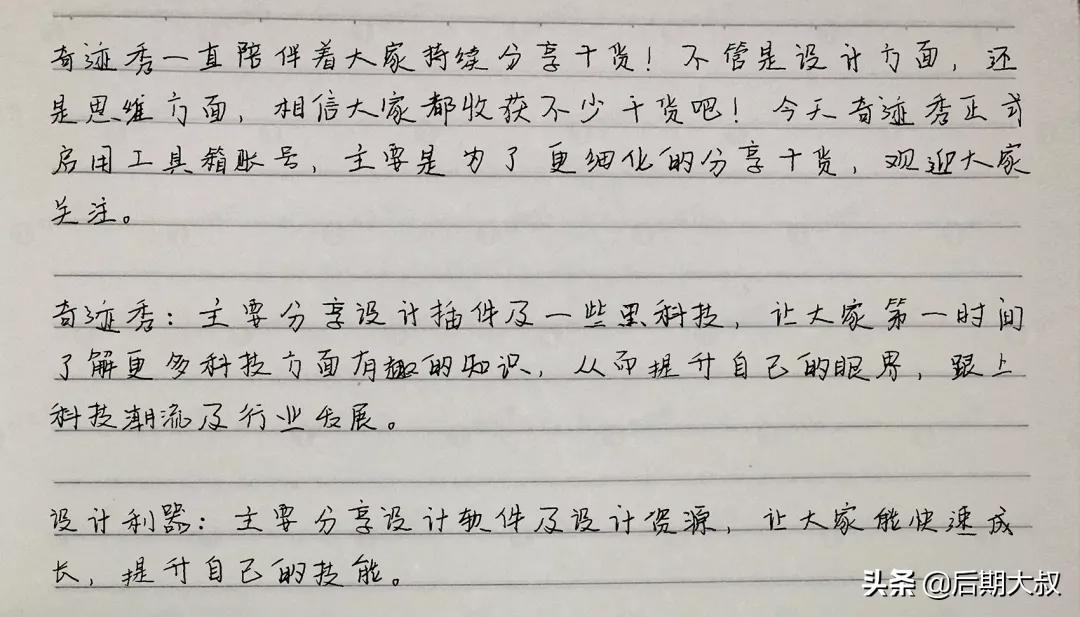 奇迹秀一直陪伴着大家持续分享干货！不管是设计方面，还
是思维方面，相信大家都收获不少干货吧！今天奇迹秀正式
启用工具箱账号，主要是为了更细化的分享干货，观迎大家
关注。
奇迹秀：主要分享设计插件及一些黑科技，让大家第一时间
了解更多科技方面有趣的知识，从而提升自己的眼界，跟上
科技潮流及行业发展。
设计利器：主要分享设计软件及设计资源，让大家能快速成
长，提升自己的技能。
头条 @后期大叔